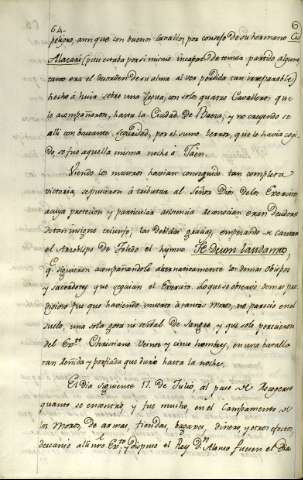 64.
peligro, aunque con buenos caballos, por consejo de su hermano Cid
Alazari (que estaba por si mismo incapaz de tomar partido alguno
tanto era el desorden de su alma al ver perdida tan irreparable)
hechó á huir sobre una Yegua, con solos quatro Cavalleros que
le acompañaron, hasta la Ciudad de Baeza, y no creyendose
alli con bastante seguridad, por el sumo terror, que lo havia cogi-
do, se fue aquella misma noche á Jaén.
Viendo los nuestros havian conseguido tan completa
victoria, se pusieron á tributar al Señor Dios de los Exercitos
a cuya proteccion y particular asistencia reconocian eran deudores
de tan insigne triunfo, las debidas gracias, empezando á cantar
el Arzobispo de Toledo el hymno Te Deum laudamus,
q.e siguieron acompañandole alternativamente los demas Obispos
y sacerdotes que seguian el Exercito. Lo que se observó de mas pro-
digioso fue que haviendo muerto á tantos Moros, no pareció en el
suelo, una sola gota ni señal de sangre, y que solo perecieron
del Ex.to Christiano veinte y cinco hombres, en una batalla
tan reñida y porfiada que duró hasta la noche.
El Dia siguiente 17. de Julio, al paso de recogerse
quanto se encontró, y fue mucho, en el Campamento de
los Moros, de armas, tiendas, bagages, viveres, y otros efectos
descansó alli nro. Ex.to, y dispuso el Rey D.n Alonso fuesen el Dia